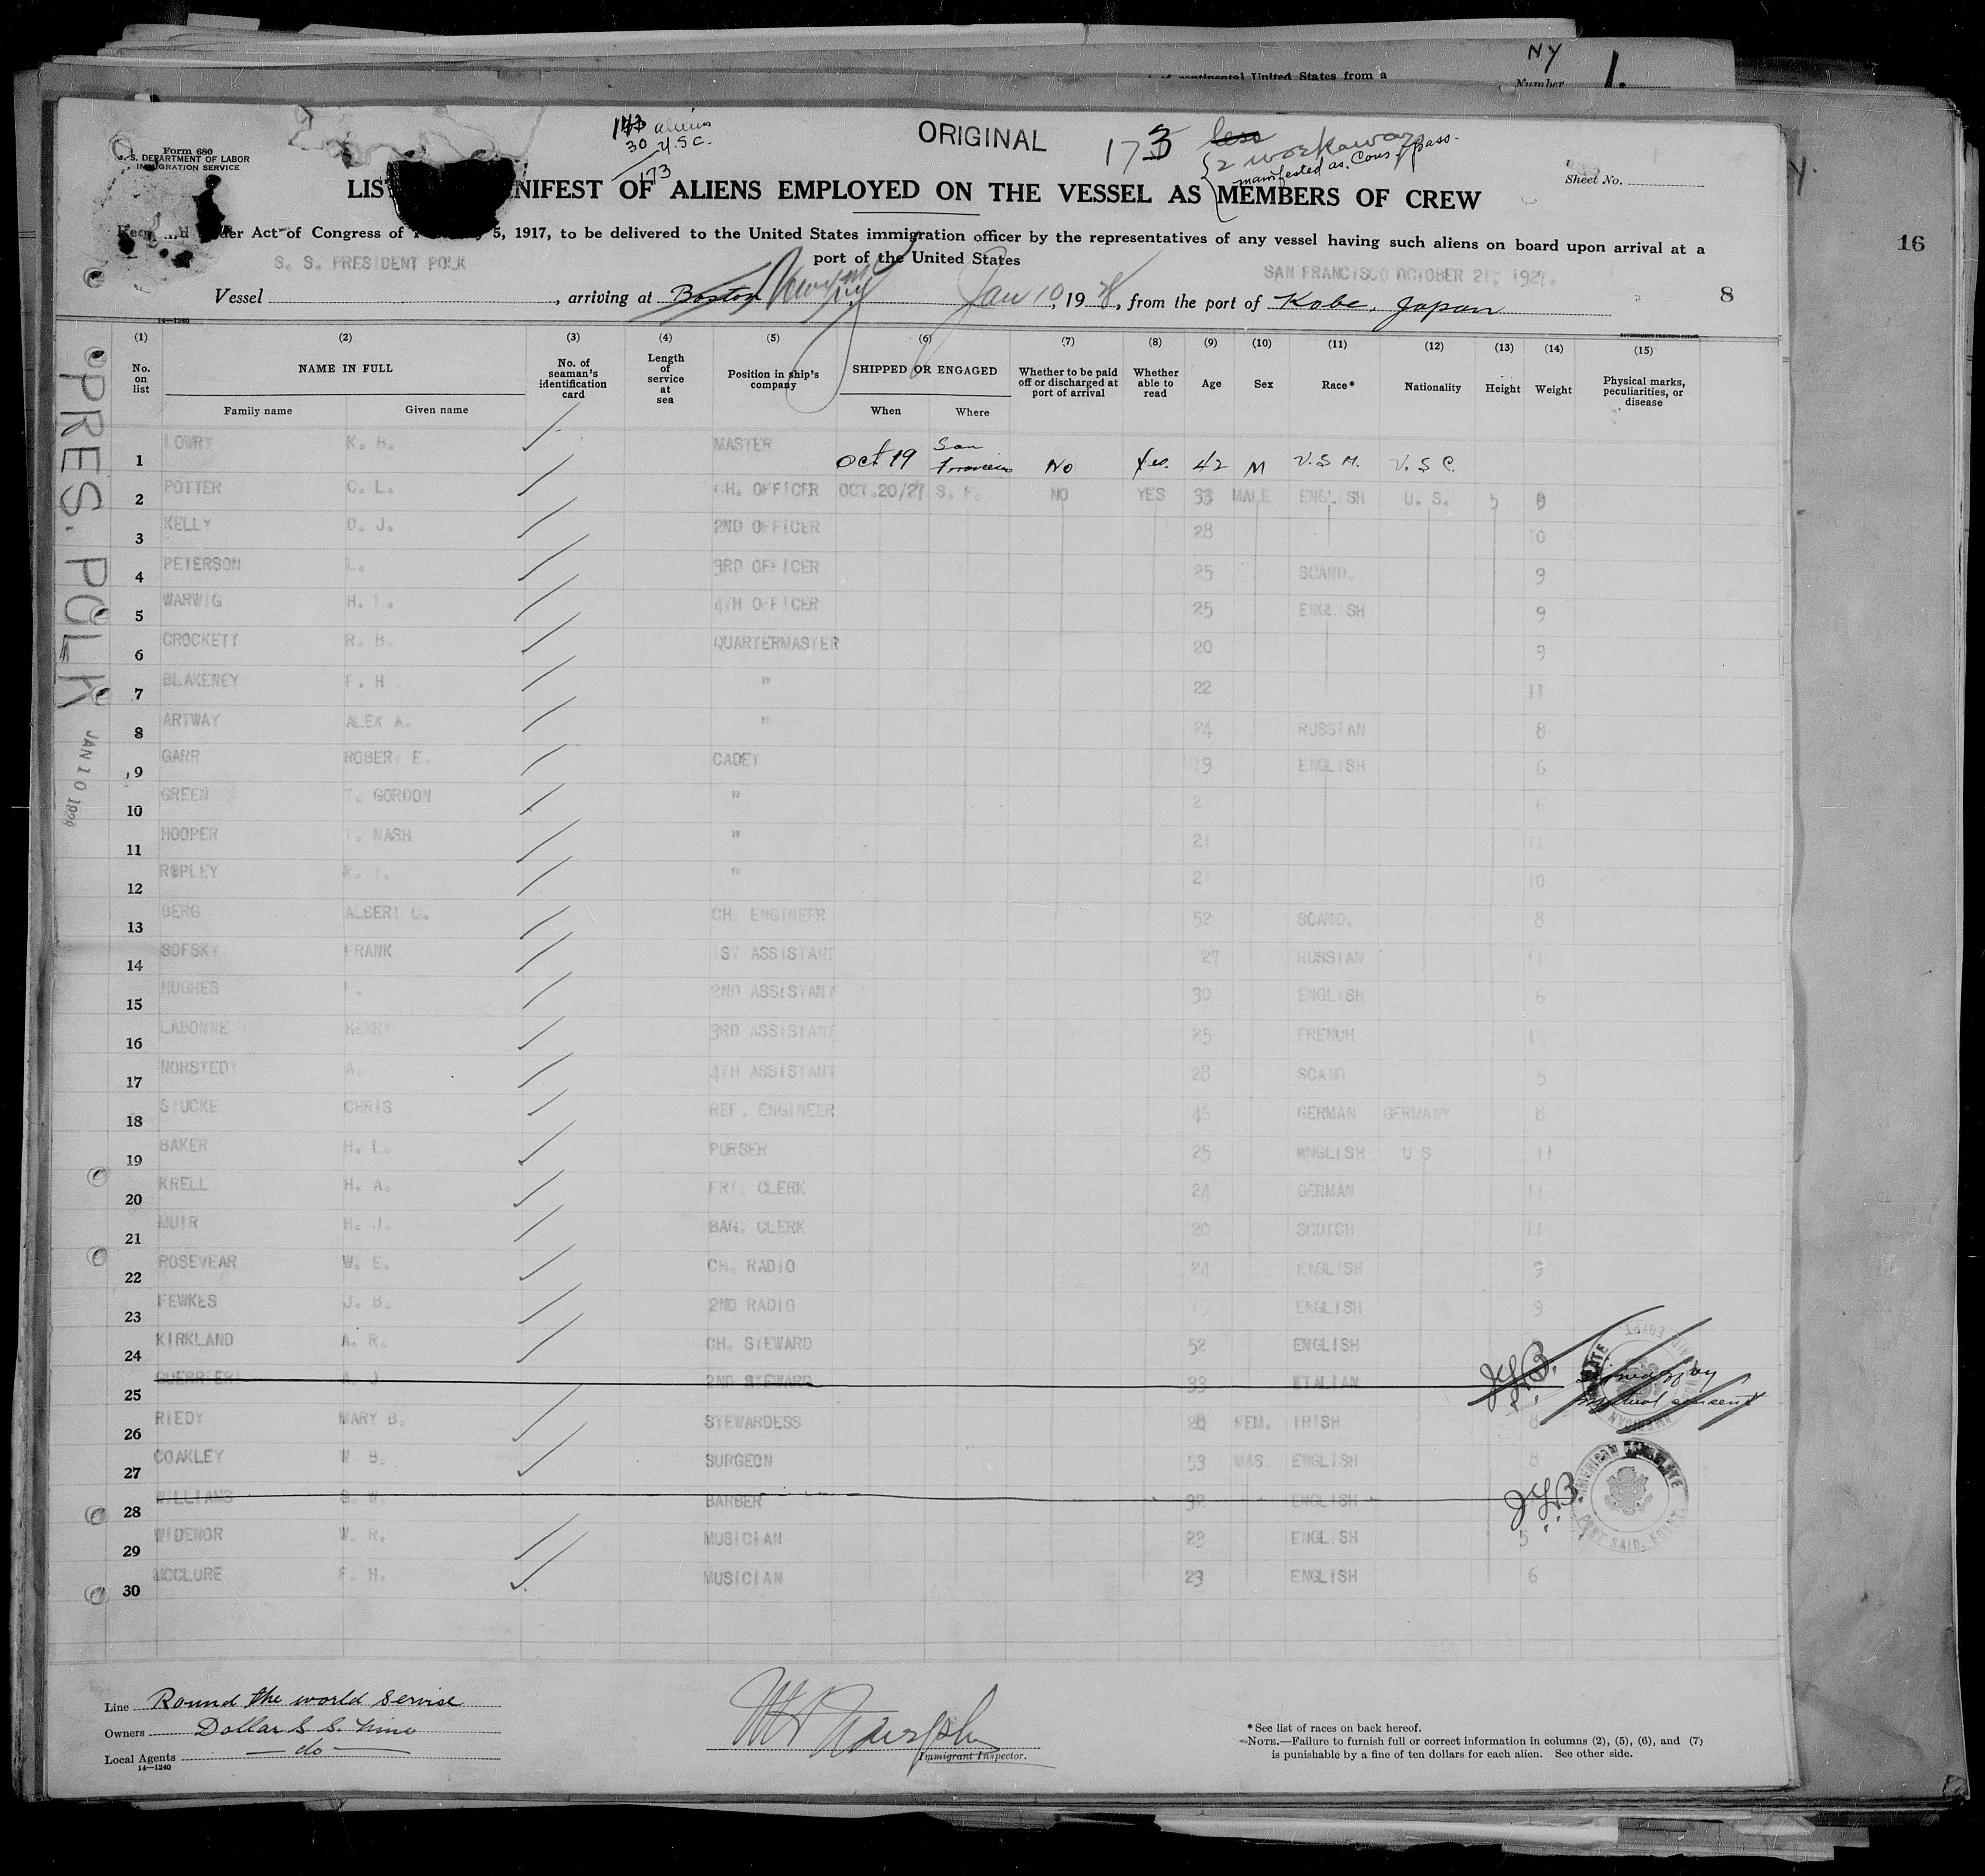 NY
of continental United States from a
Number 1.
16
Form 680
U. S. DEPARTMENT OF LABOR
IMMIGRATION SERVICE
aliens
30 U.S.C.
173
ORIGINAL
173 less
2 workaways
manifested as Cons. pass.
Sheet No.
LIST MANIFEST OF ALIENS EMPLOYED ON THE VESSEL AS MEMBERS OF CREW
der Act of Congress of 5, 1917, to be delivered to the United States immigration officer by the representatives of any vessel having such aliens on board upon arrival at a
port of the United States
S. S. PRESIDENT POLK
SAN FRANCISCO OCTOBER 21, 1927.
Vessel , arriving at Boston New York Jan 10, 1928, from the port of Kobe, Japan
8
14—1240
PRES. POLK JAN 10 1928
(1) (2) (3) (4) (5) (6) (7) (8) (9) (10) (11) (12) (13) (14) (15)
No. on list NAME IN FULL No. of seaman's identification card Length of service at sea Position in ship's company SHIPPED OR ENGAGED Whether to be paid off or discharged at port of arrival Whether able to read Age Sex Race* Nationality Height Weight Physical marks, peculiarities, or disease
Family name Given name When Where
1 LOWRY K. B. MASTER Oct 19 San Francisco No Yes 42 M U.S.C.
2 POTTER C. L. CH. OFFICER OCT.20/27 S. F. NO YES 33 MALE ENGLISH U. S. 5 9
3 KELLY D. J. 2ND OFFICER 28 10
4 PETERSON L. 3RD OFFICER 25 SCAND. 9
5 WARWIG H. L. 4TH OFFICER 25 ENGLISH 9
6 CROCKETT R. B. QUARTERMASTER 20 9
7 BLAKENEY F. H " 22 11
8 ARTWAY ALEX A. " 24 RUSSIAN 8
9 GARR ROBERT E. CADET 19 ENGLISH 6
10 GREEN T. GORDON " 6
11 HOOPER NASH " 21 11
12 ROPLEY K. " 10
13 BERG ALBERT C. CH. ENGINEER 52 SCAND. 8
14 SOFSKY FRANK 1ST ASSISTANT 27 RUSSIAN 11
15 HUGHES 2ND ASSISTANT 30 ENGLISH 6
16 LABONNE HENRY 3RD ASSISTANT 25 FRENCH
17 NORSTEDT A. 4TH ASSISTANT 28 SCAND 5
18 STUCKE CHRIS REF. ENGINEER 46 GERMAN GERMANY 8
19 BAKER H. L. PURSER 25 ENGLISH U S 11
20 KRELL H. A. FRT. CLERK 24 GERMAN 11
21 MUIR H. J. BAG. CLERK 20 SCOTCH 11
22 ROSEVEAR W. E. CH. RADIO 24 ENGLISH 9
23 FEWKES J. B. 2ND RADIO 19 ENGLISH 9
24 KIRKLAND A. R. CH. STEWARD 52 ENGLISH
25 GUERRIERI A. J 2ND STEWARD 33 ITALIAN
mutual consent
26 RIEDY MARY B. STEWARDESS 28 FEM. IRISH 8
27 COAKLEY W. B. SURGEON 53 MAS. ENGLISH 8
28 WILLIAMS S. W. BARBER 32 ENGLISH
AMERICAN CONSULATE PORT SAID, EGYPT
29 WIDENOR W. R. MUSICIAN 23 ENGLISH 5
30 MCCLURE F. H. MUSICIAN 23 ENGLISH 6
Line Round the world Service
Owners Dollar S. S. Line
Local Agents do
14—1240
Immigrant Inspector.
*See list of races on back hereof.
NOTE.—Failure to furnish full or correct information in columns (2), (5), (6), and (7)
is punishable by a fine of ten dollars for each alien. See other side.